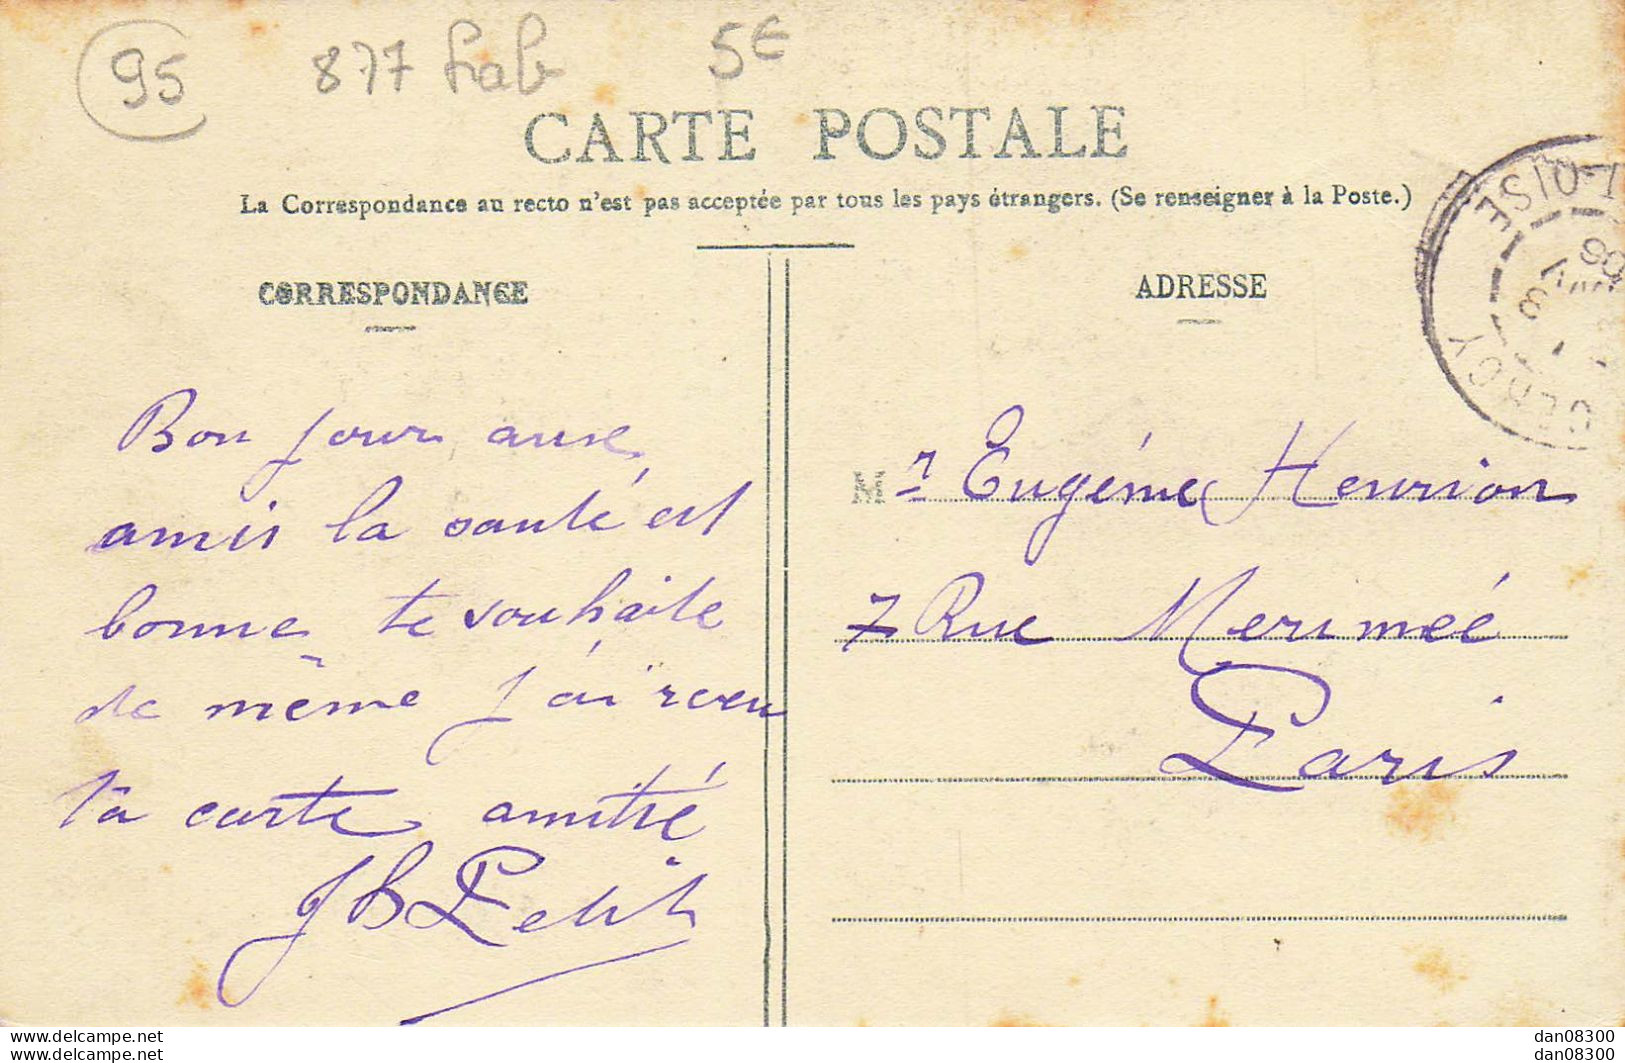 95 877 5€
CARTE POSTALE
La Correspondance au recto n'est pas acceptée par tous les pays étrangers. (Se renseigner à la Poste.)
CORRESPONDANCE
Bon jour aux
amis la santé est
bonne te souhaite
de même j'ai reçu
ta carte amitié
JB Petit
ADRESSE
Mr Eugéne Henrion
7 Rue Meriméé
Paris
T-OISE
06
8
CERGY
delcampe.net
delcampe.net
dan08300
dan08300